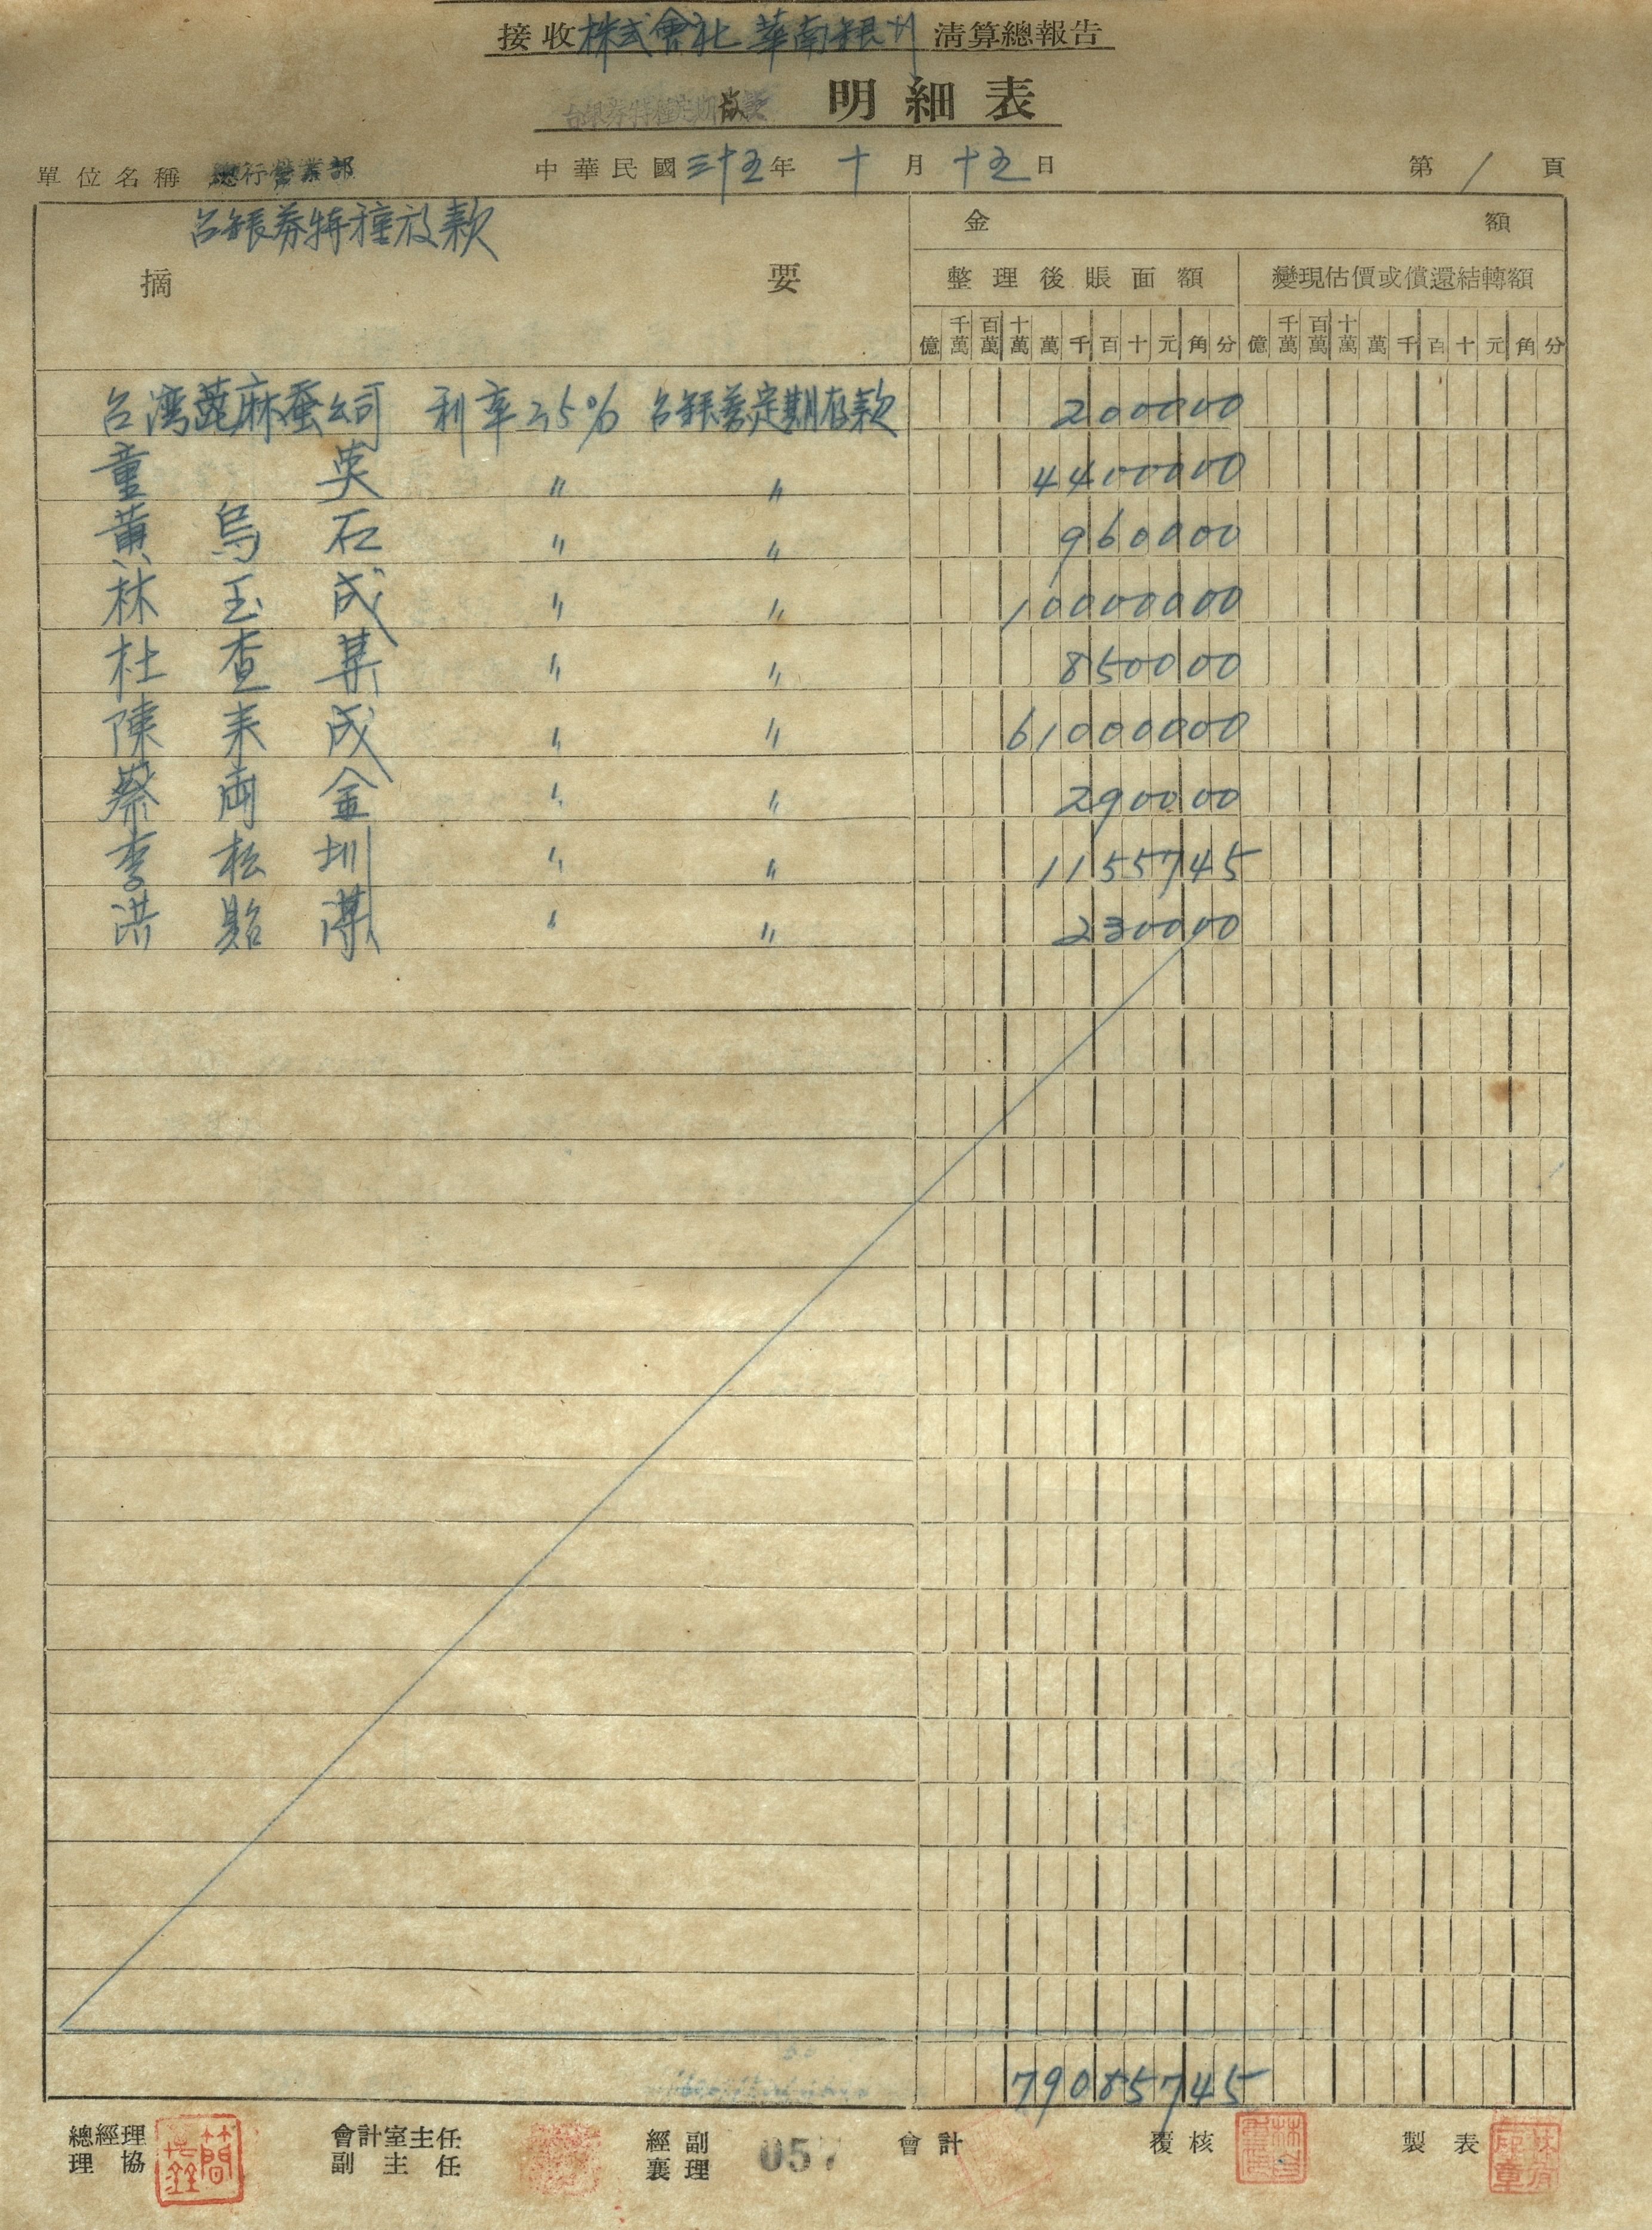 接收株式會社 華南銀行 清算總報告
台銀券特種定期放款 明細表
單位名稱 總行營業部 中華民國三十五年 十 月 十五 日 第 1 頁
台銀券特種放款
摘 要
金 額
整理後賬面額 變現估價或償還結轉額
億 千萬 百萬 十萬 萬 千 百 十 元 角 分 億 千萬 百萬 十萬 萬 千 百 十 元 角 分
台湾蓖麻蚕公司 利率 2.5% 台銀券定期存款 200000
童 英 〃 〃 4400000
黃 烏 石 〃 〃 960000
林 玉 成 〃 〃 10000000
杜 查 某 〃 〃 850000
陳 来 成 〃 〃 61000000
蔡 両 金 〃 〃 290000
李 松 圳 〃 〃 1155745
洪 貽 〃 〃 230000
79085745
總經理 會計室主任 經副 會計 覆核 製表
理 協 副主任 襄理
057